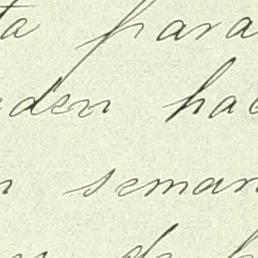 ta para
eden hac
n seman
de h